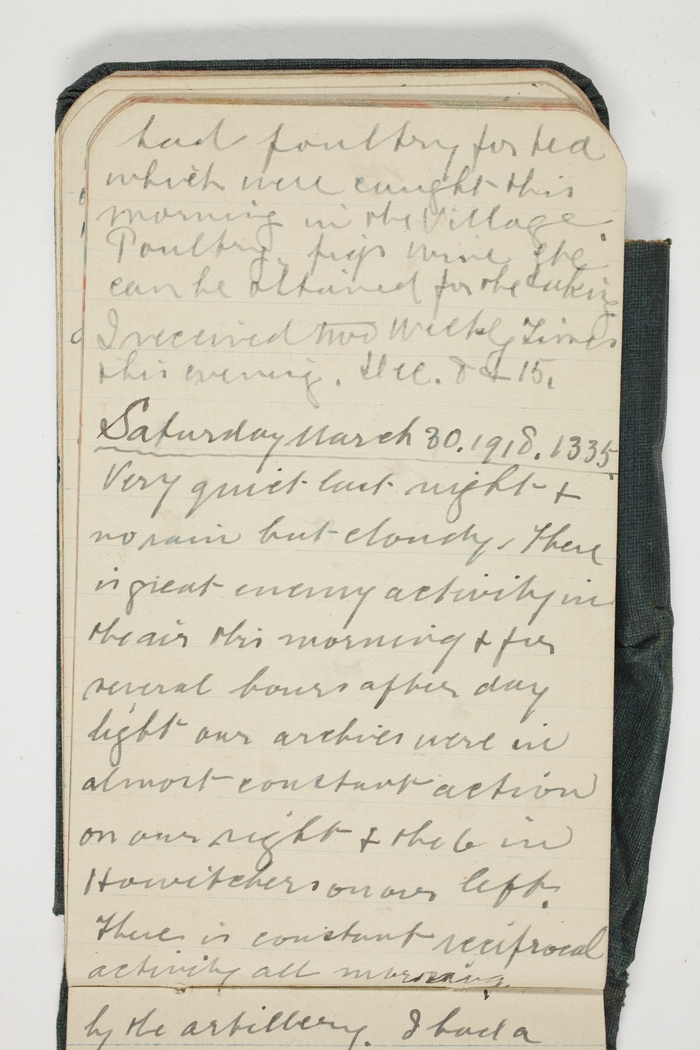 had poultry for tea
which were caught this
morning in the Village.
Poultry, pigs wine etc
can be obtained for the taking
I received two Weekly Times
this evening. Dec. 8 & 15.
Saturday March 30. 1918. 1335
Very quiet last night &
no rain but cloudy. There
is great enemy activity in
the air this morning & for
several hours after day
light our archies were in
almost constant action
on our right & the 6 in
Howitchers on our left.
There is constant reciprocal
activity all morning
by the artillery. I had a